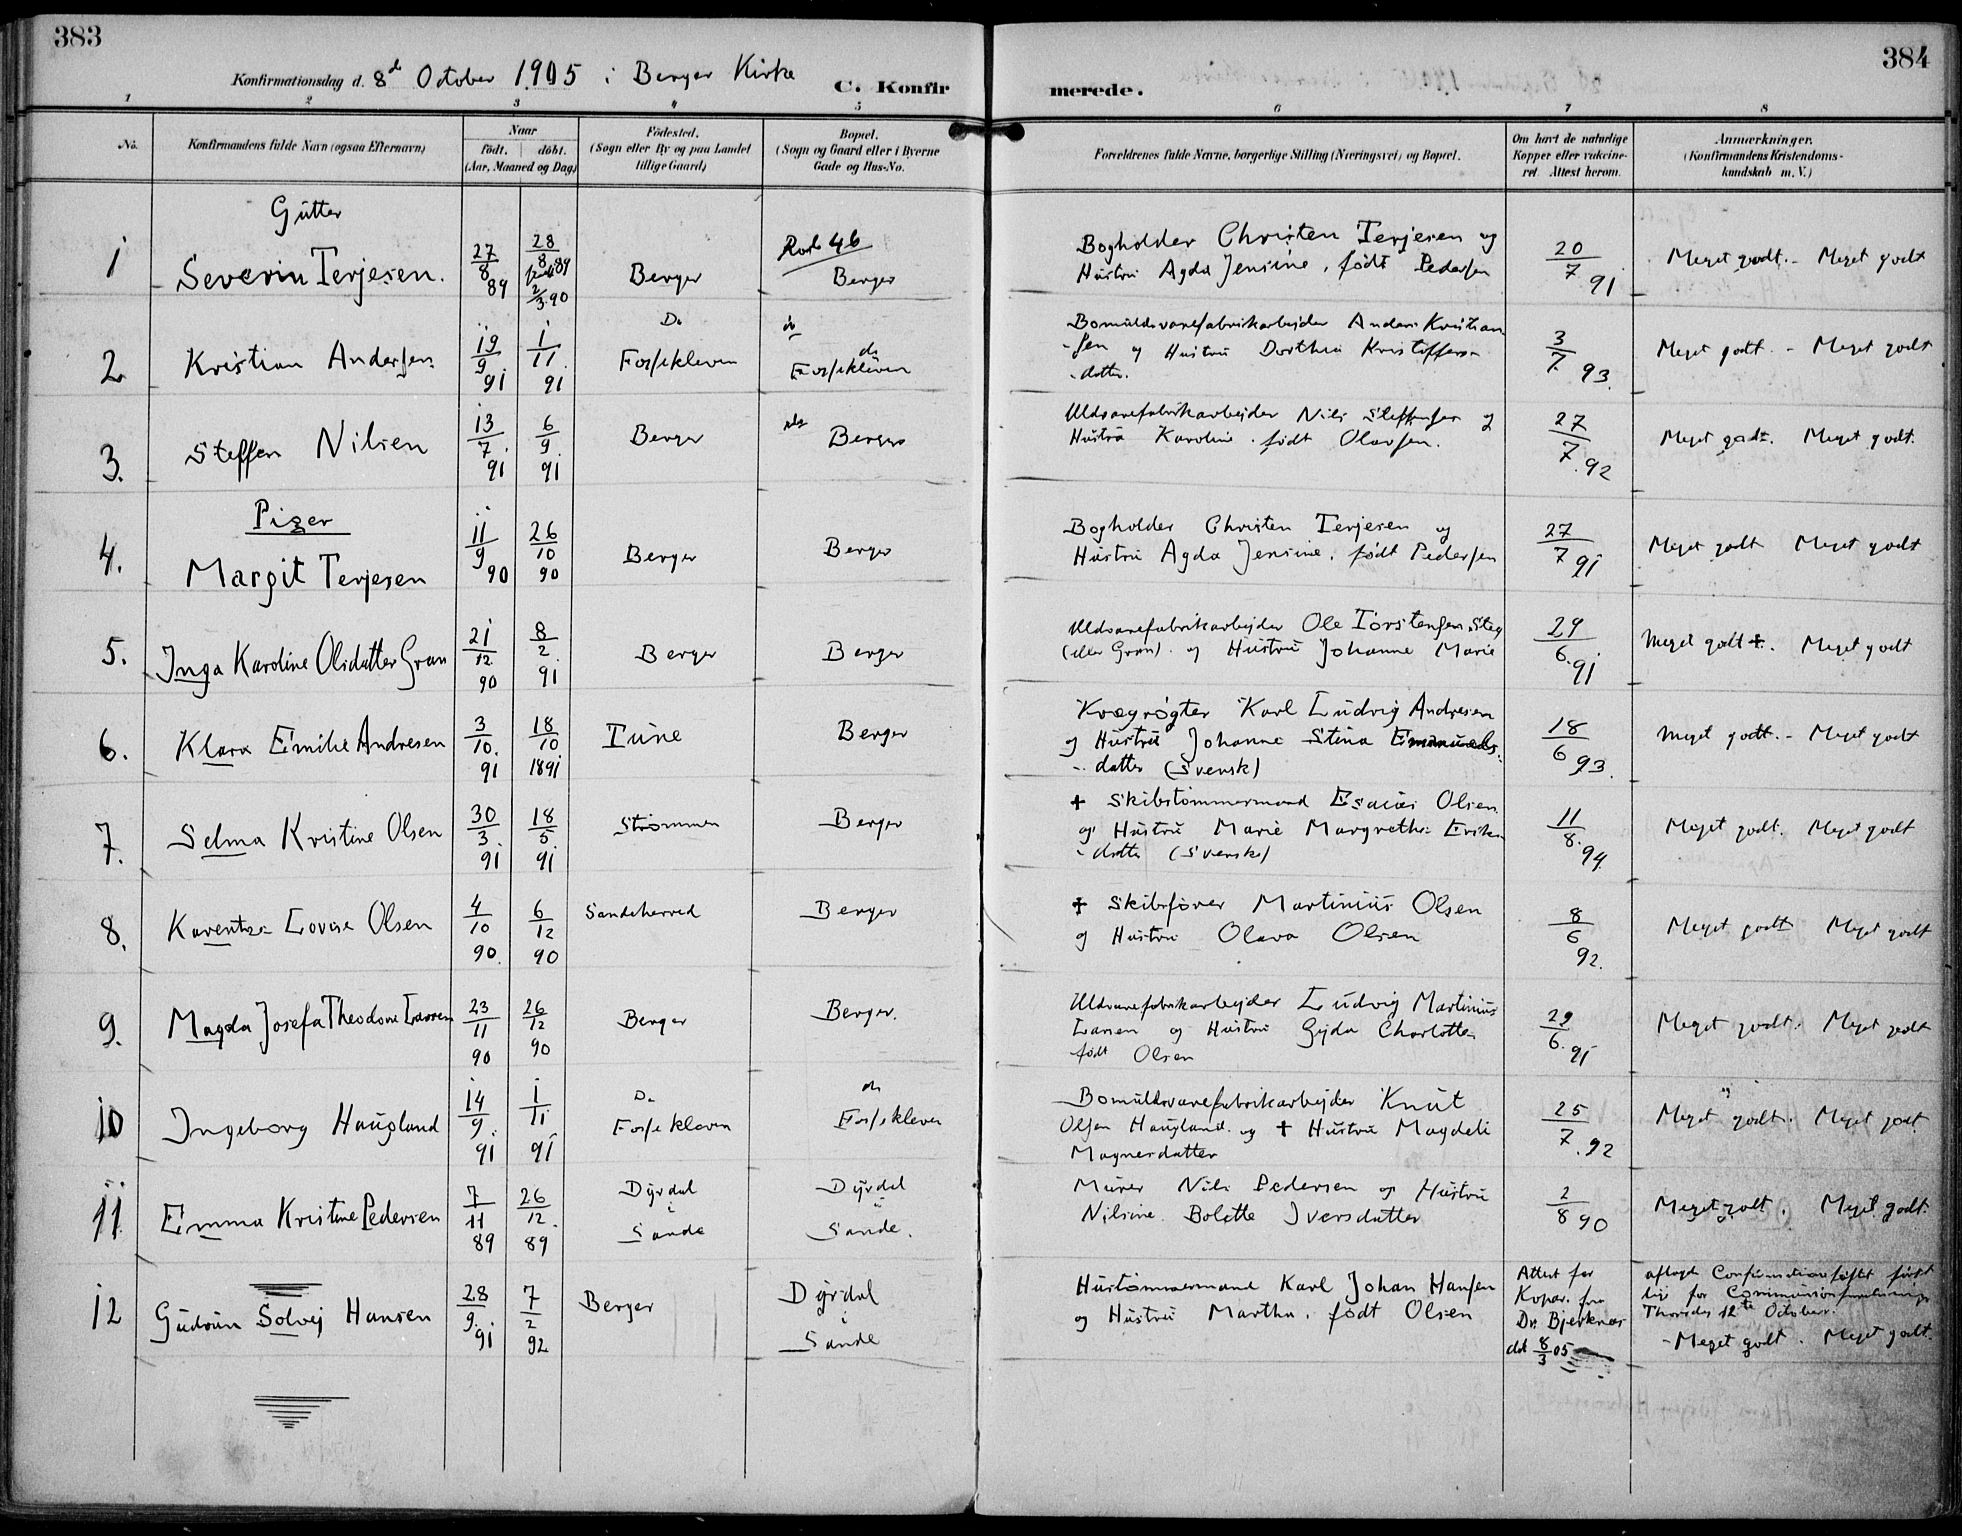 383
384
Konfirmationsdag d. 8d October 1905 i Berger Kirke
C. Konfirmerede.
1 2 3 4 5 6 7 8
No.
Konfirmandens fulde Navn (ogsaa Efternavn)
Naar
født. døbt.
(Aar, Maaned og Dag)
Födested.
(Sogn eller By og paa Landet
tillige Gaard)
Bopæl.
(Sogn og Gaard eller i Byerne
Gade og Hus-No.
Forældrenes fulde Navne, borgerlige Stilling (Næringsvei) og Bopæl.
Om havt de naturlige
Kopper eller vakcine-
ret. Attest herom.
Anmærkninger.
(Konfirmandens Kristendoms-
kundskab m. V.)
Gutter
1 Severin Terjesen. 27/8 89 28/8 89 2/3 90 Berger Berger
Bogholder Christen Terjesen og
Hustru Agda Jensine, født Pedersen
20/7 91 Meget godt. - Meget godt
2 Kristian Andersen 19/9 91 1/11 91 Do Fossekleven do Fossekleven
Bomuldsvarefabrikarbejder Anders Kristian
-sen og Hustru Dorthea Kristoffers-
-datter.
3/7 93. Meget godt. - Meget godt
3. Steffen Nilsen 13/7 91 6/9 91 Berger Berger
Uldvarefabrikarbejder Nils Steffensen og
Hustru Karoline født Olavsen.
27/7 92 Meget godt. Meget godt.
Piger
4. Margit Terjesen 11/9 90 26/10 90 Berger Berger
Bogholder Christen Terjesen og
Hustru Agda Jensine, født Pedersen
27/7 91 Meget godt Meget godt
5. Inga Karoline Olsdatter Gran 21/12 90 8/2 91 Berger Berger
Uldvarefabrikarbejder Ole Torstensen Steg
(eller Gran). og Hustru Johanne Marie
29/6 91 Meget godt +. Meget godt
6. Klara Emilie Andresen 3/10 91 18/10 1891 Tune Berger
Kvægrøgter Karl Ludvig Andresen
og Hustru Johanne Stina Emanuels-
-datter (Svensk)
18/6 93. Meget godt. - Meget godt
7. Selma Kristine Olsen 30/3 91 18/5 91 Strømmen Berger
+ Skibstømmermand Esaias Olsen
og Hustru Marie Margrethe Eriks-
-datter (Svensk)
11/8 94 Meget godt. Meget godt
8. Karentze Lovise Olsen 4/10 90 6/12 90 Sandeherred Berger
+ Skibsfører Martinius Olsen
og Hustru Olava Olsen
8/6 92. Meget godt Meget godt
9. Magda Josefa Theodora Larsen 23/11 90 26/12 90 Berger Berger.
Uldvarefabrikarbejder Ludvig Martinius
Larsen og Hustru Gyda Charlotte
født Olsen
29/6. 91 Meget godt. Meget godt
10 Ingeborg Haugland 14/9 91 1/11 91 Do Fossekleven do Fossekleven
Bomuldsvarefabrikarbejder Knut
Olsen Haugland og + Hustru Magdeli
Magnesdatter
25/7 92 Meget godt. Meget godt.
11. Emma Kristine Pedersen 7/11 89 26/12 89 Dyrdal i Sande Dyrdal i Sande.
Murer Nils Pedersen og Hustru
Nilsine Bolette Iversdatter
2/8 90 Meget godt. Meget godt.
12 Gudrun Solvej Hansen 28/9 91 7/2 92 Berger Dyrdal i Sande
Hustømmermand Karl Johan Hansen
og Hustru Martha, født Olsen
Attest for
Kopar. fra
Dr. Bjerknæs
dat 8/3 05
aflagde Confirmationsløftet først
Thorsdag 12te October.
- Meget godt. Meget godt.